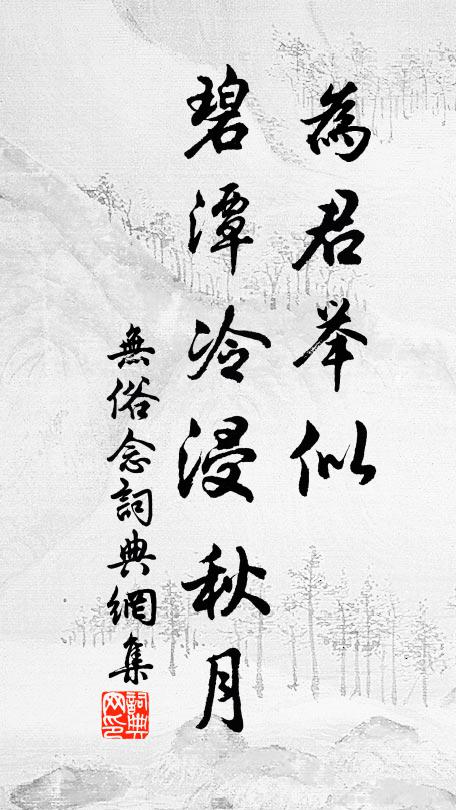 為君举似
碧潭冷浸秋月
無俗念詞典網集
詞典网印